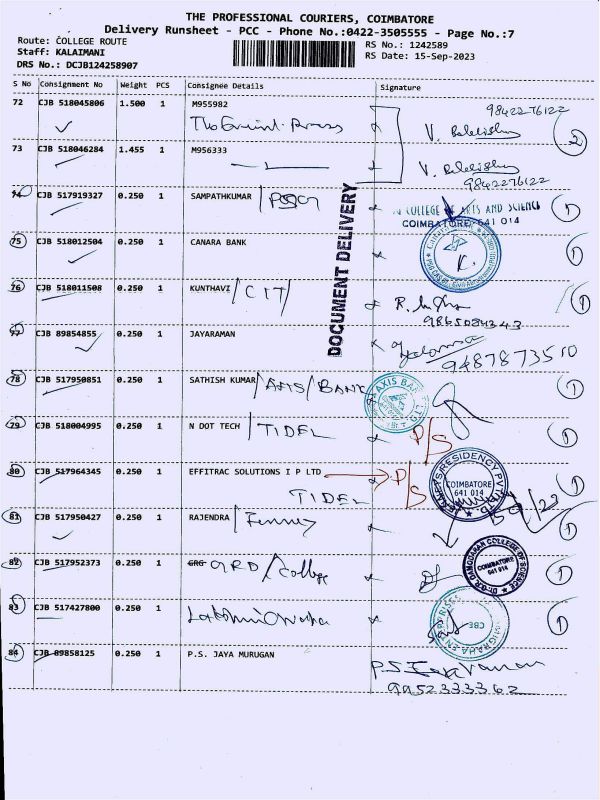 THE PROFESSIONAL COURIERS, COIMBATORE
Delivery Runsheet - PCC - Phone No.:0422-3505555 - Page No.:7
Route: COLLEGE ROUTE
RS No.: 1242589
Staff: KALAIMANI
RS Date: 15-Sep-2023
DRS No.: DCJB124258907
S No Consignment No Weight PCS Consignee Details Signature
72 CJB 518045806 1.500 1 M955982
98422 76122
V.
2
73 CJB 518046284 1.455 1 M956333
V.
9842276122
DOCUMENT DELIVERY
74 CJB 517919327 0.250 1 SAMPATHKUMAR / PSG
COLLEGE OF ARTS AND SCIENCE
COIMBATORE 641 014
1
75 CJB 518012504 0.250 1 CANARA BANK
1
76 CJB 518011508 0.250 1 KUNTHAVI / CIT /
R.
9865084343
1
77 CJB 89854855 0.250 1 JAYARAMAN
9487873510
78 CJB 517950851 0.250 1 SATHISH KUMAR / AXIS / BANK
AXIS BANK
1
79 CJB 518004995 0.250 1 N DOT TECH / TIDEL
P/S
1
80 CJB 517964345 0.250 1 EFFITRAC SOLUTIONS I P LTD
P/S
TIDEL
RESIDENCY PVT LTD
COIMBATORE
641 014
1
81 CJB 517950427 0.250 1 RAJENDRA /
1
82 CJB 517952373 0.250 1 GRG GRD / College
DR. G.R. DAMODARAN COLLEGE OF SCIENCE
COIMBATORE
641 014
1
83 CJB 517427800 0.250 1
CBE
1
84 CJB 89858125 0.250 1 P.S. JAYA MURUGAN
P.S.
9952333362